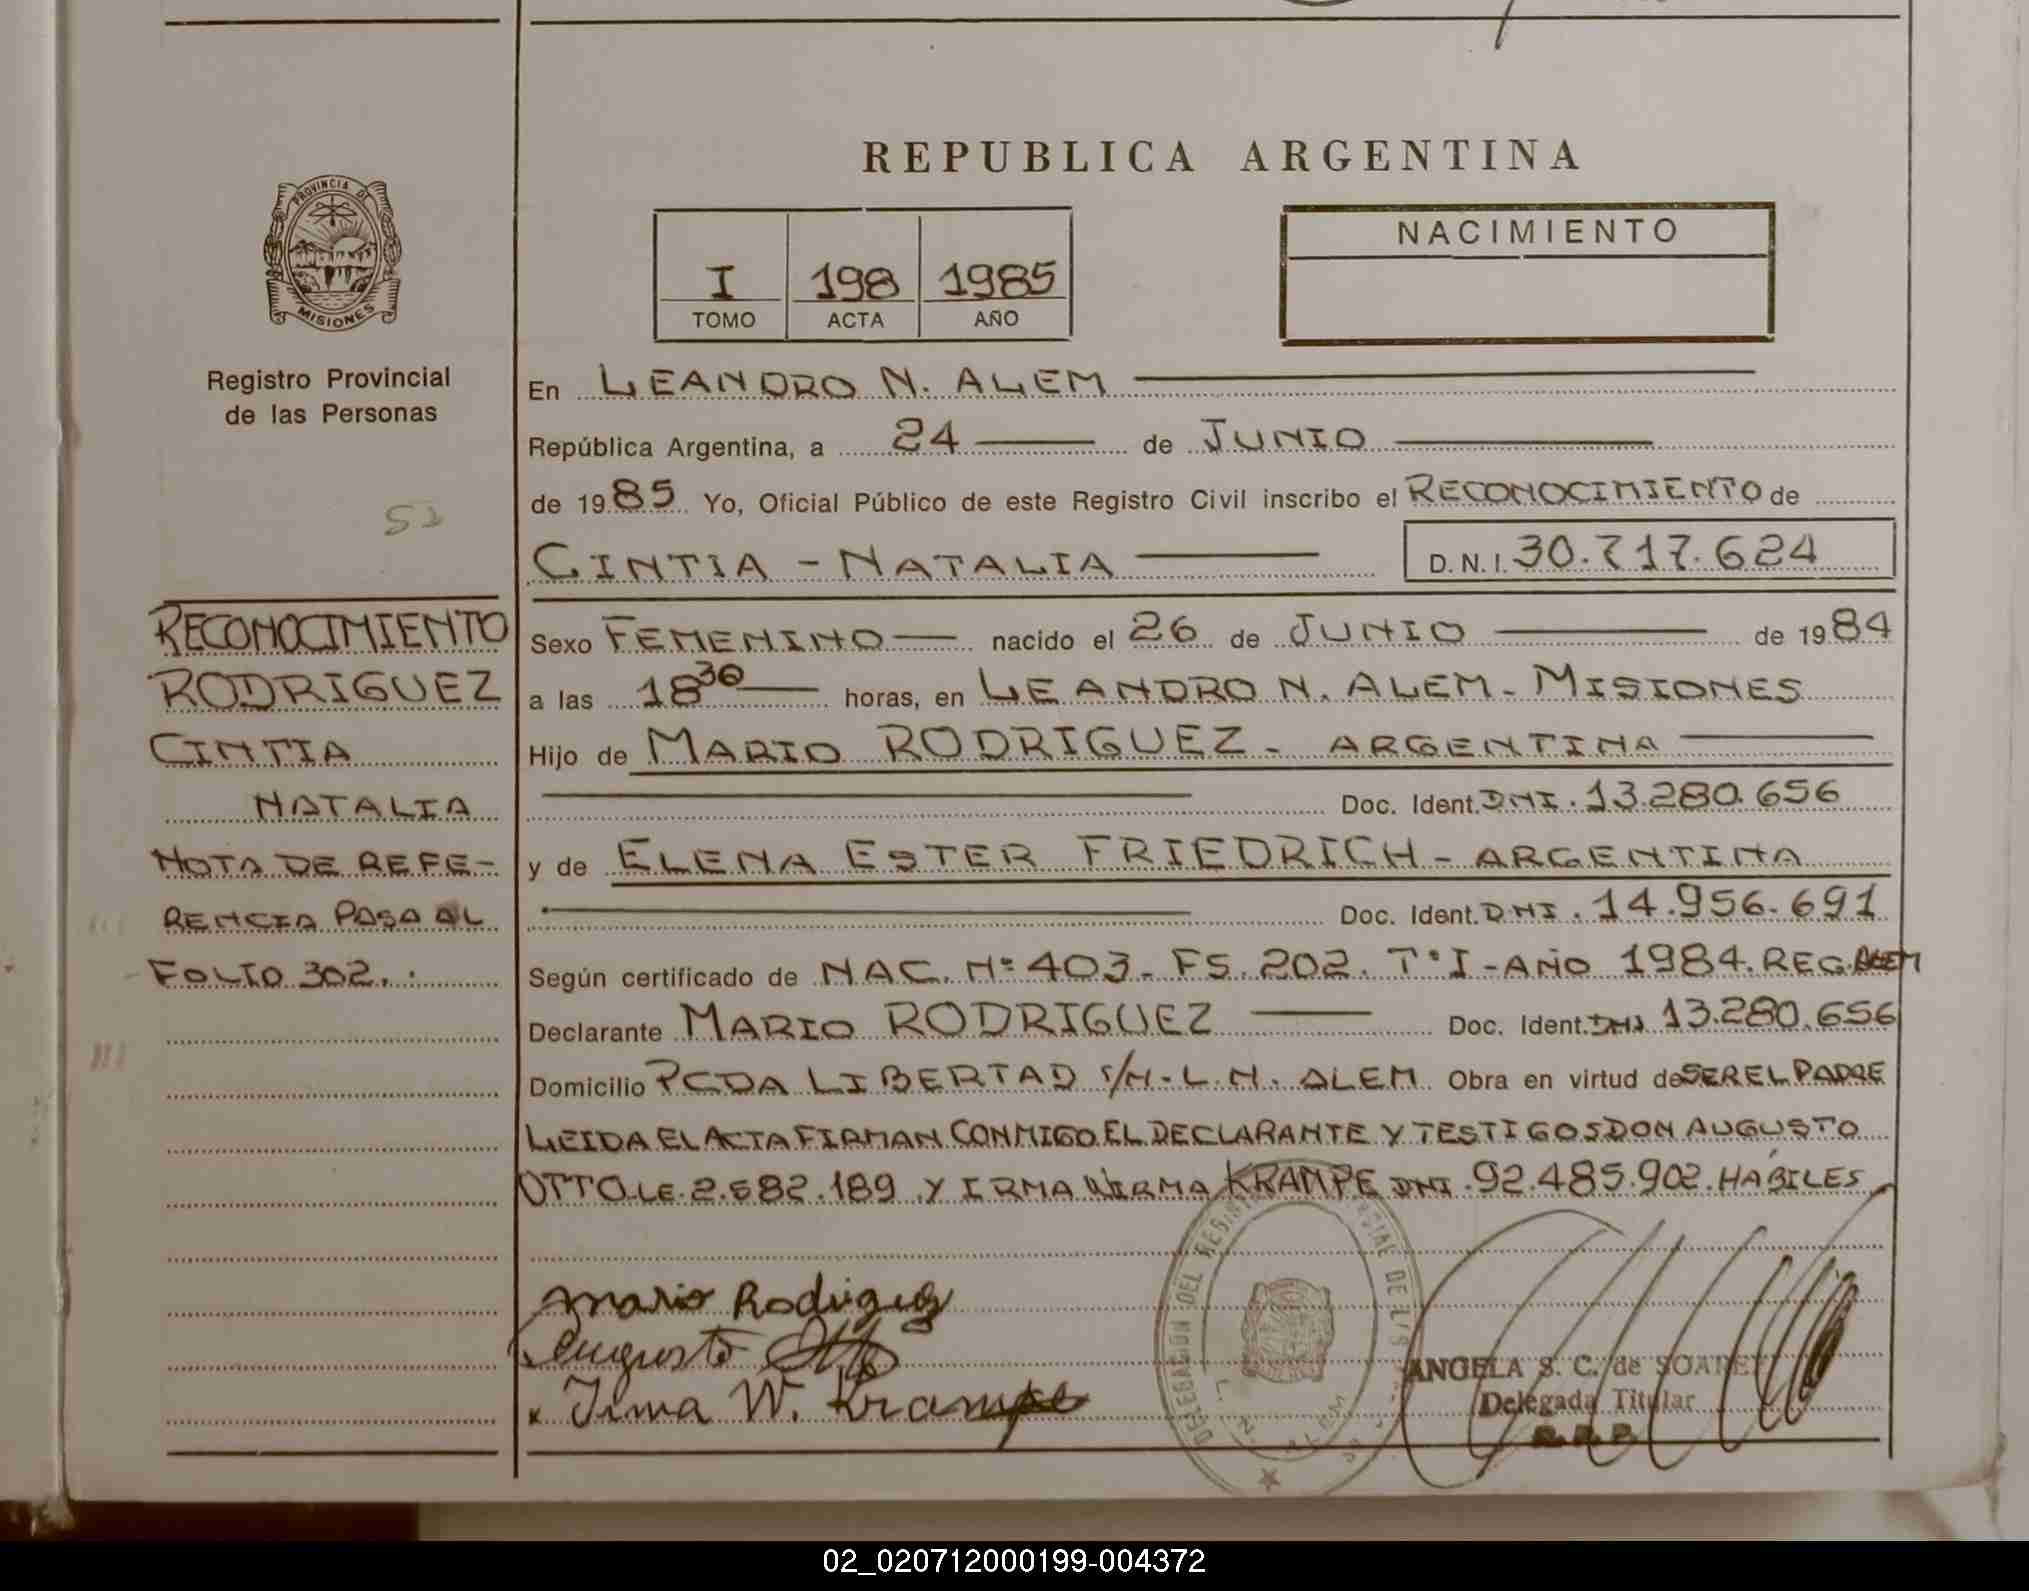 REPUBLICA ARGENTINA
PROVINCIA DE
MISIONES
Registro Provincial
de las Personas
52
I 198 1985
TOMO ACTA AÑO
NACIMIENTO
En LEANDRO N. ALEM
República Argentina, a 24 de JUNIO
de 1985 Yo, Oficial Público de este Registro Civil inscribo el RECONOCIMIENTO de
CINTIA - NATALIA D.N.I. 30.717.624
RECONOCIMIENTO
RODRIGUEZ
CINTIA
NATALIA
NOTA DE REFE-
RENCIA PASA AL
FOLIO 302.
Sexo FEMENINO nacido el 26 de JUNIO de 1984
a las 18 30 horas, en LEANDRO N. ALEM - MISIONES
Hijo de MARIO RODRIGUEZ - ARGENTINA
Doc. Ident. DNI. 13.280.656
y de ELENA ESTER FRIEDRICH - ARGENTINA
Doc. Ident. DNI. 14.956.691
Según certificado de NAC. Nº 403 - FS. 202. Tº I - AÑO 1984. REG. ALEM
Declarante MARIO RODRIGUEZ Doc. Ident. DNI 13.280.656
Domicilio PCDA LIBERTAD S/N - L. N. ALEM Obra en virtud de SER EL PADRE
LEIDA EL ACTA FIRMAN CONMIGO EL DECLARANTE Y TESTIGOS DON AUGUSTO
OTTO LE. 2.582.189 Y IRMA WIRMA KRAMPE DNI. 92.485.902. HABILES
Mario Rodriguez
Augusto
Irma W. Krampe
DELEGACION DEL REGISTRO PROVINCIAL DE L
L. N. ALEM
ANGELA S. C. de SOARES
Delegada Titular
R.R.P.
02_020712000199-004372